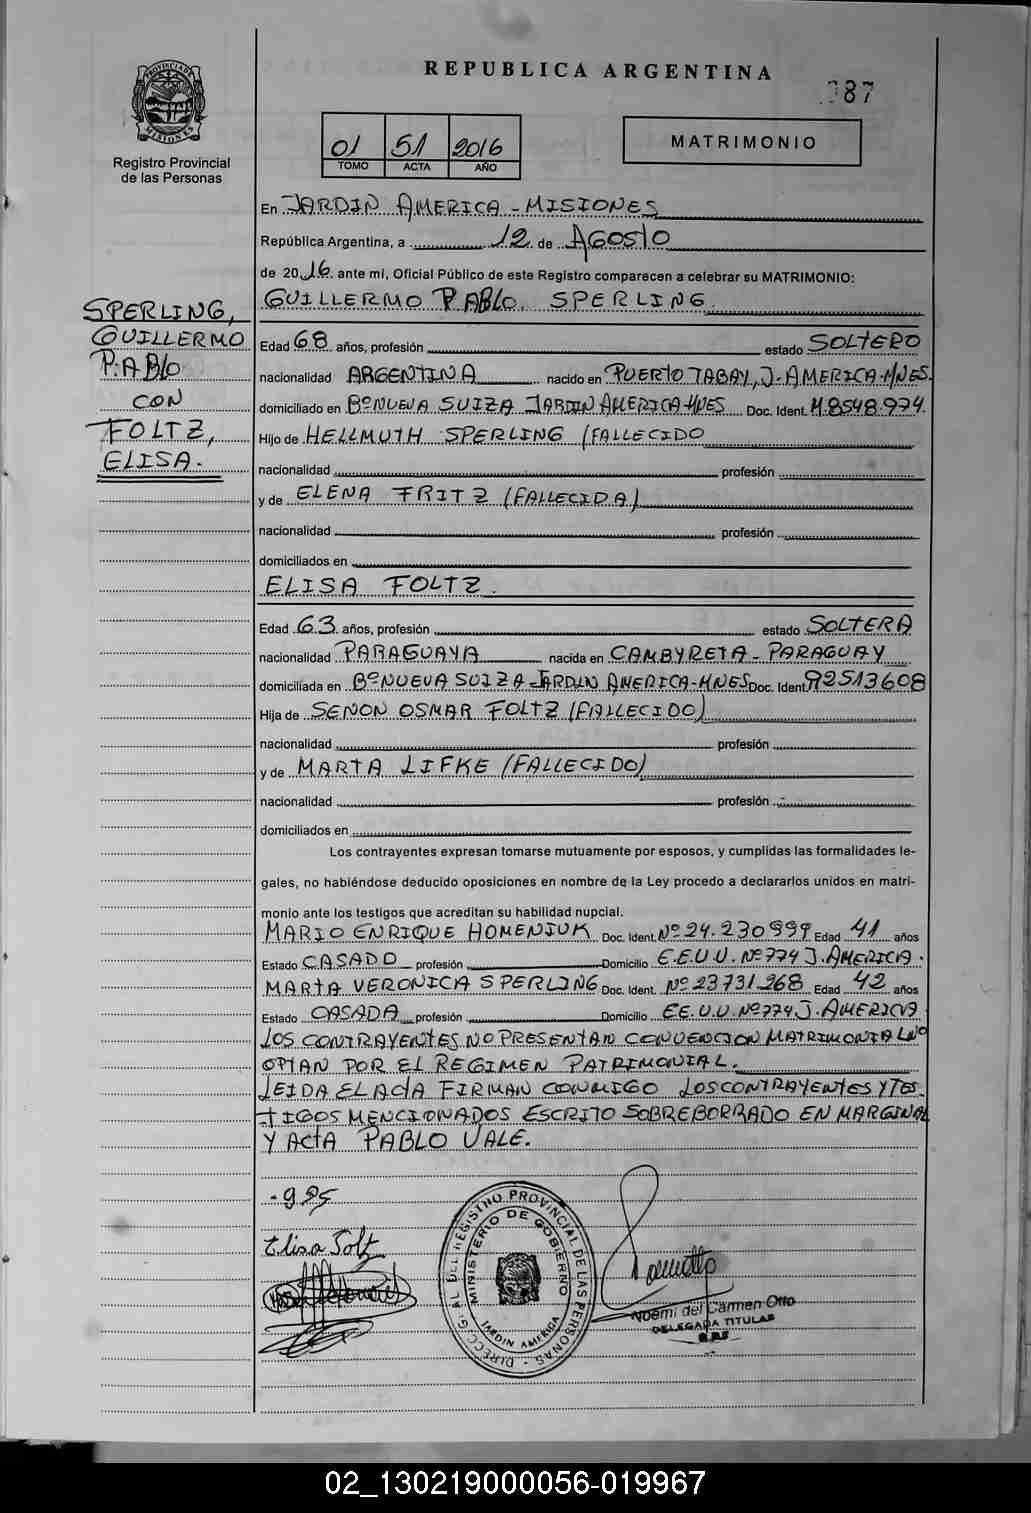 REPUBLICA ARGENTINA
087
PROVINCIA DE MISIONES
Registro Provincial
de las Personas
01 51 2016
TOMO ACTA AÑO
MATRIMONIO
En JARDIN AMERICA - MISIONES
República Argentina, a 12 de AGOSTO
de 2016. ante mi, Oficial Público de este Registro comparecen a celebrar su MATRIMONIO:
GUILLERMO PABLO SPERLING
SPERLING,
GUILLERMO
PABLO
CON
FOLTZ,
ELISA.
Edad 68 años, profesión estado SOLTERO
nacionalidad ARGENTINA nacido en PUERTO TABAY, J. AMERICA-MNES.
domiciliado en Bº NUEVA SUIZA JARDIN AMERICA-MNES Doc. Ident. M.8548.974.
Hijo de HELLMUTH SPERLING (FALLECIDO
nacionalidad profesión
y de ELENA FRITZ (FALLECIDA)
nacionalidad profesión
domiciliados en
ELISA FOLTZ.
Edad 63 años, profesión estado SOLTERA
nacionalidad PARAGUAYA nacida en CAMBYRETA - PARAGUAY
domiciliada en Bº NUEVA SUIZA JARDIN AMERICA-MNES Doc. Ident. 92513608
Hija de SENON OSMAR FOLTZ (FALLECIDO)
nacionalidad profesión
y de MARTA LIFKE (FALLECIDO)
nacionalidad profesión
domiciliados en
Los contrayentes expresan tomarse mutuamente por esposos, y cumplidas las formalidades le-
gales, no habiéndose deducido oposiciones en nombre de la Ley procedo a declararlos unidos en matri-
monio ante los testigos que acreditan su habilidad nupcial.
MARIO ENRIQUE HOMENIUK Doc. Ident. Nº 24.230999 Edad 41 años
Estado CASADO profesión Domicilio E.E.U.U. Nº 774 J. AMERICA.
MARTA VERONICA SPERLING Doc. Ident. Nº 23731268 Edad 42 años
Estado CASADA profesión Domicilio EE.U.U. Nº 774 J. AMERICA
LOS CONTRAYENTES NO PRESENTAN CONVENCION MATRIMONIAL NO
OPTAN POR EL REGIMEN PATRIMONIAL.
LEIDA EL ACTA FIRMAN CONMIGO LOS CONTRAYENTES Y TES
TIGOS MENCIONADOS ESCRITO SOBREBORRADO EN MARGINAL
Y ACTA PABLO VALE.
Elisa Foltz
DIRECC. G·AL DEL REGISTRO PROVINCIAL DE LAS PERSONAS
MINISTERIO DE GOBIERNO
JARDIN AMERICA
Noemi del Carmen Otto
DELEGADA TITULAR
02_130219000056-019967